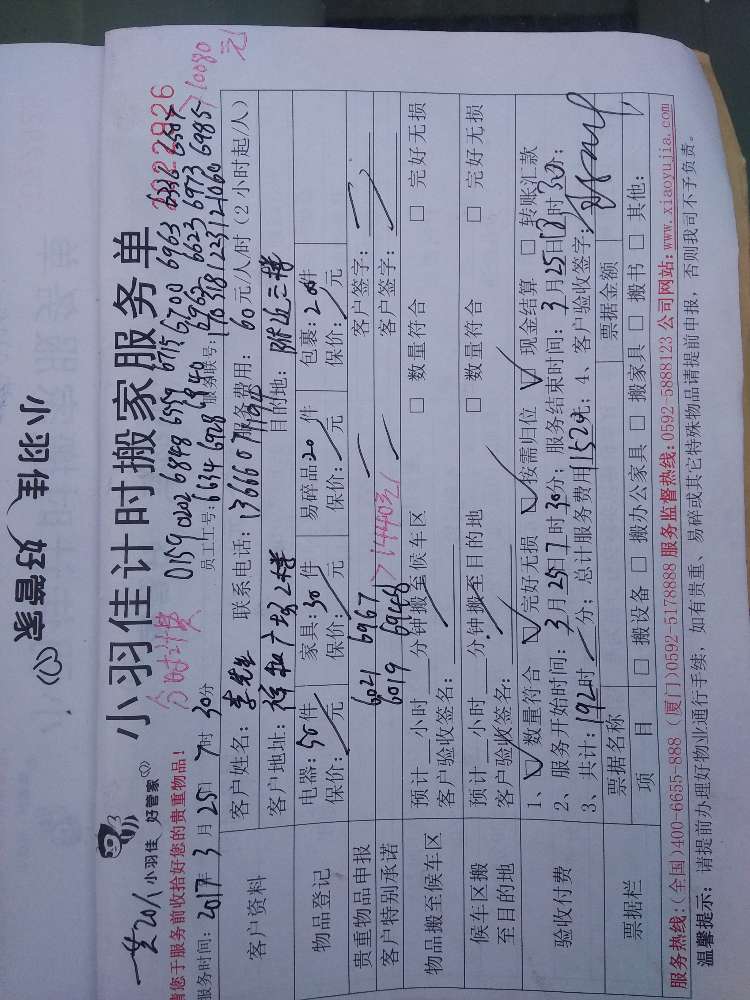 小羽佳 好管家
小羽佳计时搬家服务单
一共20人 小羽佳 好管家
分时计费
10080元
请您于服务前收拾好您的贵重物品!
0159 0202 6848 6559 6715 6700 6963
员工工号: 6634 6928 6940 6962 6623 6973 6985
服务时间: 2017年 3月 25日 7时 30分
服务联号:
客户资料
客户姓名: 李先生 联系电话: 服务费用: 60元/人/时 (2小时起/人)
客户地址: 目的地: 附近三楼
物品登记
电器: 50件 家具: 30件 易碎品20件 包裹: 200件
保价: 元 保价: 元 保价: 元 保价: 元
贵重物品申报 6021 6967 客户签字:
客户特别承诺 6019 6946 14440元 客户签字:
物品搬至候车区
预计 小时 分钟搬至候车区 □ 数量符合 □ 完好无损
客户验收签名:
候车区搬至目的地
预计 小时 分钟搬至目的地 □ 数量符合 □ 完好无损
客户验收签名:
验收付费
1、☑ 数量符合 ☑ 完好无损 ☑ 按需归位 ☑ 现金结算 □ 转账汇款
2、服务开始时间: 3月25日7时30分; 服务结束时间: 3月25日 时30分;
3、共计: 192时 分; 总计服务费用11520元; 4、客户验收签字:
票据栏
票据名称 票据金额
项 目 □ 搬设备 □ 搬办公家具 □ 搬家具 □ 搬书 □ 其他:
服务热线:(全国)400-6655-888 (厦门)0592-5178888 服务监督热线:0592-5888123 公司网站:www.xiaoyujia.com
温馨提示: 请提前办理好物业通行手续, 如有贵重、易碎或其它特殊物品请提前申报, 否则我司不予负责。